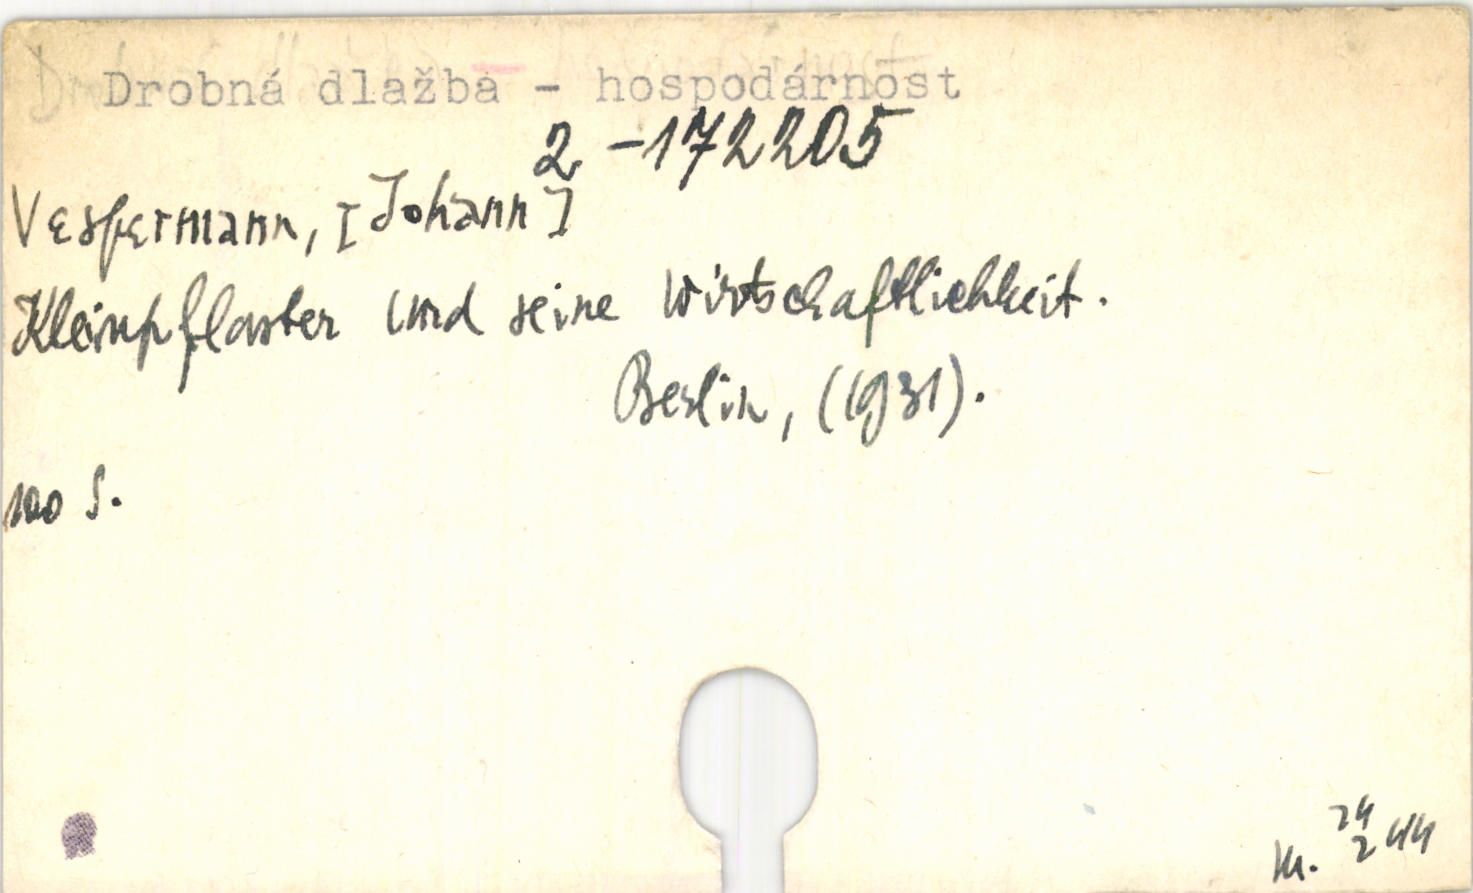 Drobná dlažba - hospodárnost
2-172205
Vespermann, [Johann]
Kleinpflaster und seine Wirtschaftlichkeit.
Berlin, (1931).
100 S.
24
2 44